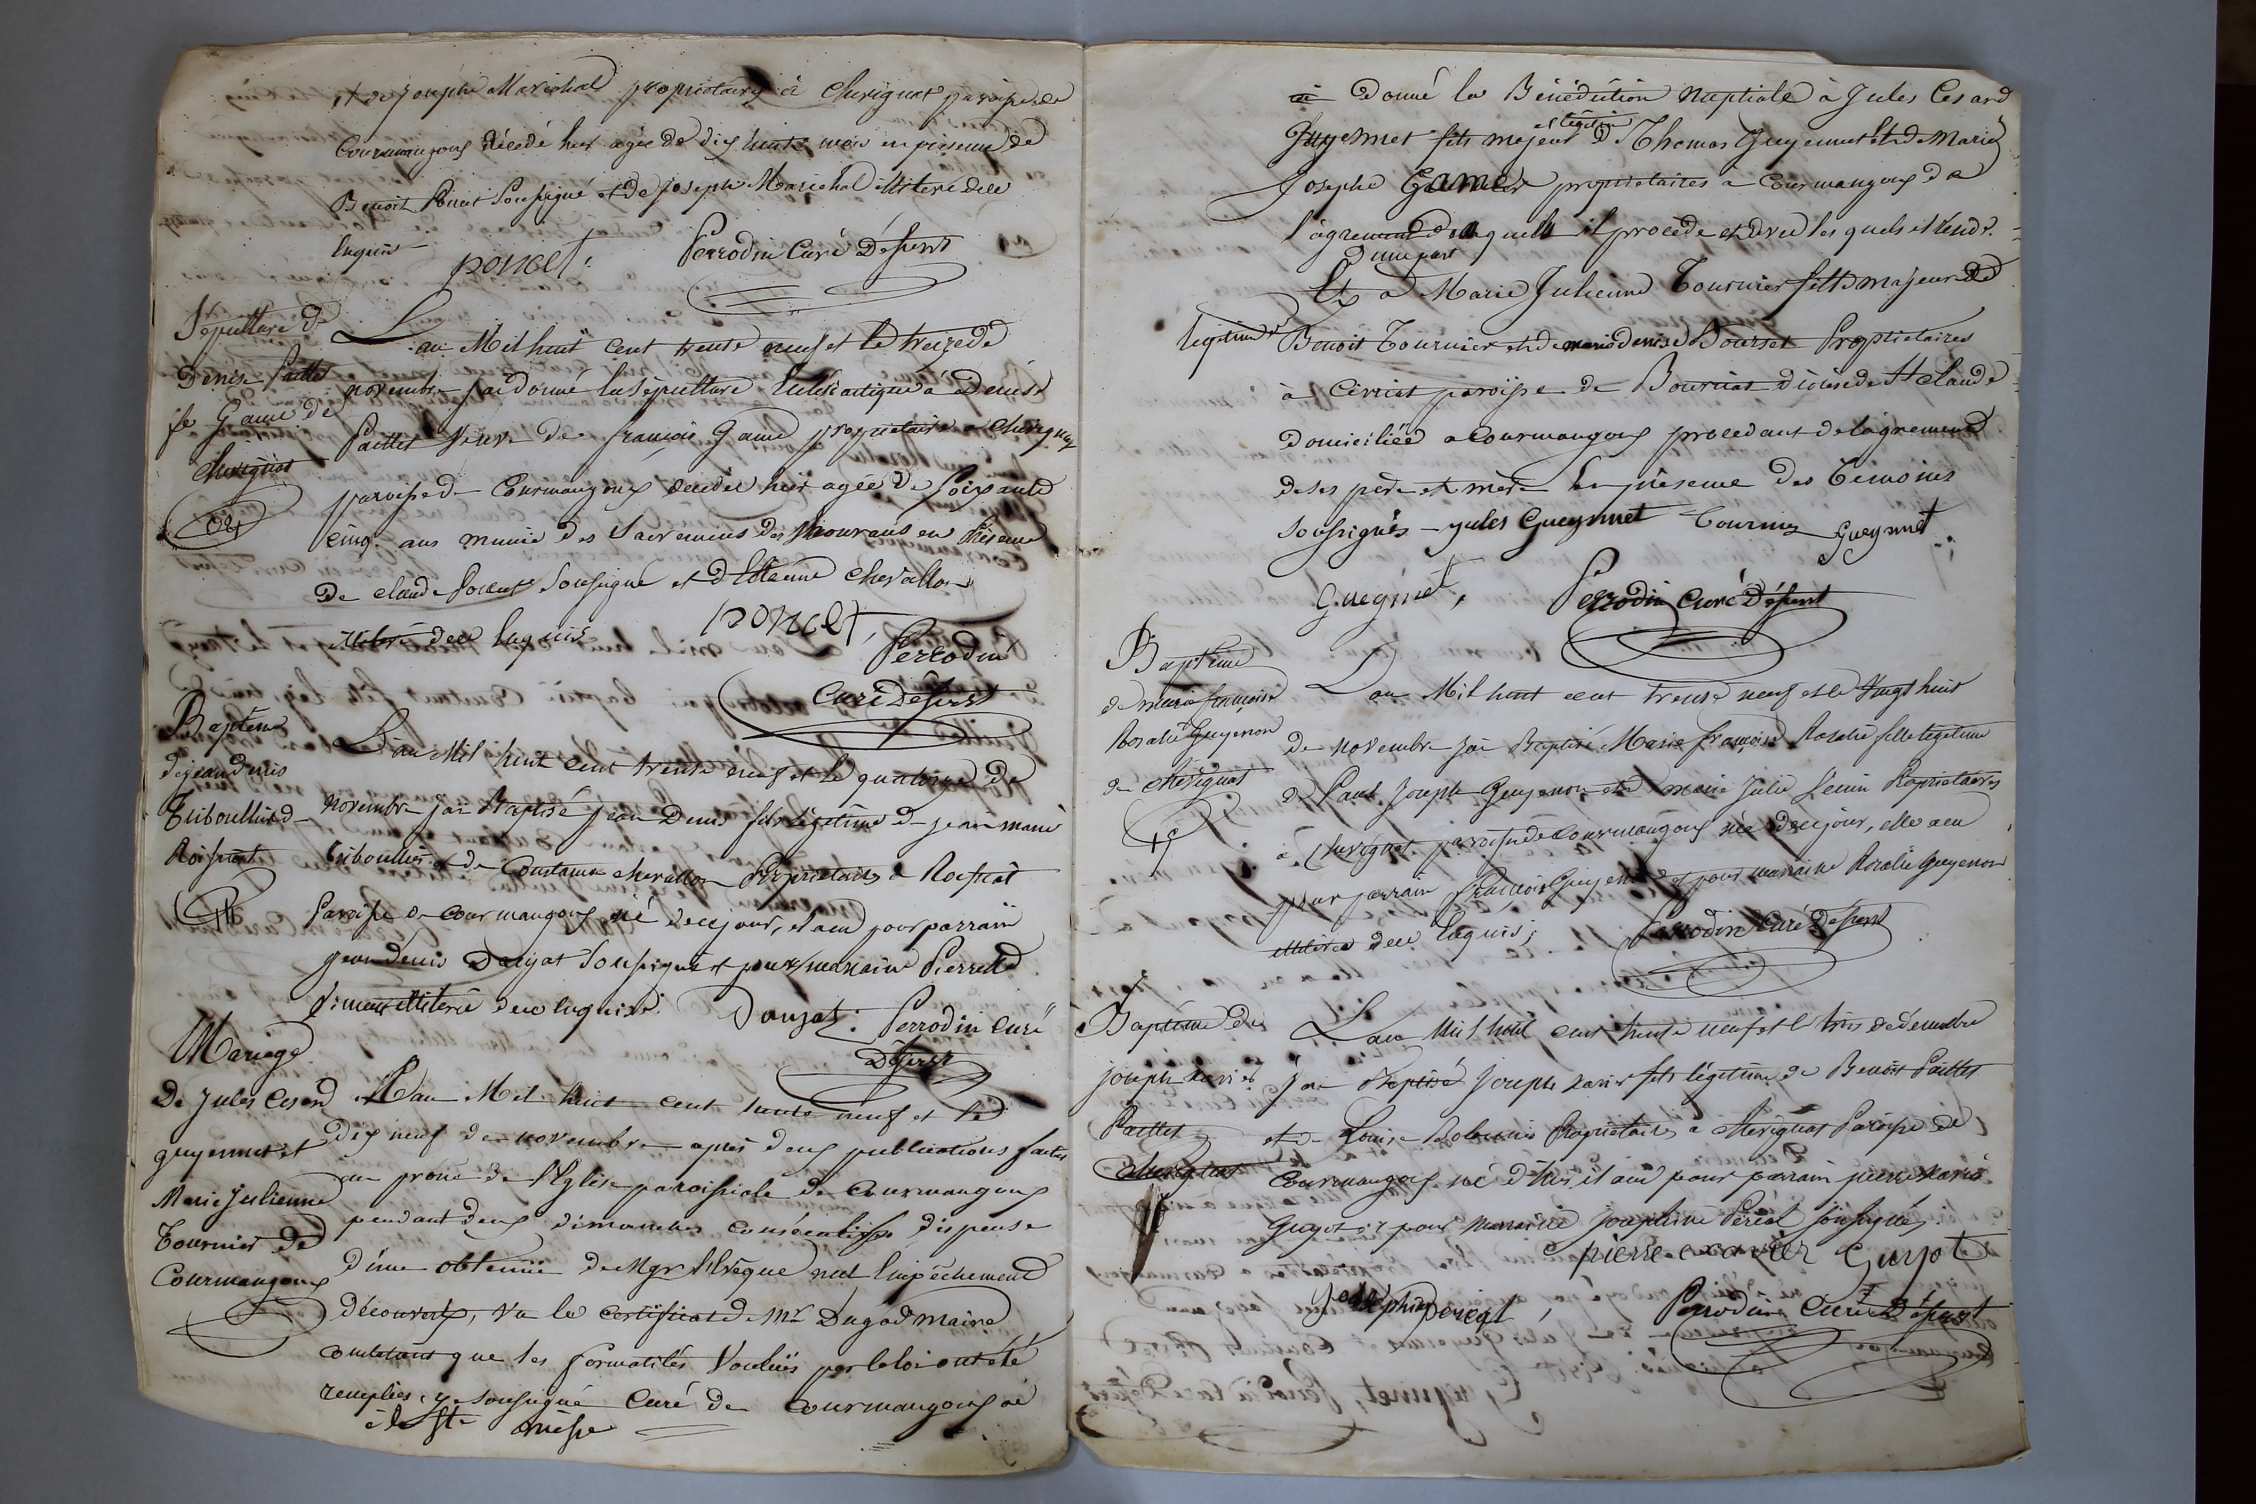 et de joseph Marechal propriétaires à Chevignat paroisse de
Courmangoux décédé hier agée de dix huit mois en presence de
Benoit Poncet soussigné et de joseph Marechal illiteré dece
Enquis
poncet. Perrodin Curé Desserv
Sépulture de
Denise Paillet
fe Game de
Chevignat
L'an Mil huit cent trente neuf et le treize de
novembre j'ai donné la sépulture Ecclésiastique à Denise
Paillet Veuve de françois Game propriétaire a Chevignat
paroisse de Courmangoux decedée hier agée de soixante
cinq ans munie des sacremens des mourans en presence
de claude Poncet soussigné et d'Etienne chevallon
illiteré dece Enquis
poncet, Perrodin
Curé Desserv
Baptême
de jean denis
Tribouillet de
Roissiat
L'an Mil huit cent trente neuf et le quatorze de
novembre jai Baptisé jean Denis fils légitime de jean marie
Tribouillet et de Constance chevallon Propriétaires a Roissiat
Paroisse de Courmangoux né de ce jour, il a eu pour parrain
jean denis Daujat soussigné et pour marraine Pierrette
illiterée dece enquise. Daujat. Perrodin Curé
Desserv
Mariage
De Jules Cesard
guyennet et
Marie Julienne
Tournier de
Courmangoux
L'an Mil huit cent trente neuf et le
dix neuf de novembre après deux publications faites
au prône de l'Eglise paroissiale de Courmangoux
pendant deux dimanches consécutifs dispense
d'une obtenue de Mgr l'Evêque nul Empêchement
découvert, vu le certificat de Mr Dagod maire
constatant que les formalités voulues par la loi ont été
remplies, je soussigné Curé de Courmangoux ai
à la Ste messe
ai Donné la Bénédiction Nuptiale à Jules Cesard
Guyennet fils majeur et légitime de Thomas Guyennet et de Marie
Josephe Game propriétaires a Courmangoux de
l'agrement desquels il procède et avec les quels il réside
d'une part
Et a Marie Julienne Tournier fille majeure et
legitime de Benoit Tournier et de marie denise Bourset Propriétaires
à Civriat paroisse de diocèse de St claude
domiciliée a Courmangoux procedant de l'agrement
de ses père et mère En présence des Témoins
soussignés jules Gueynnet Tournier Gueynnet
Gueynet, Perrodin Curé Desserv
Baptême
de marie françoise
Rosalie Guyenon
de chevignat
L'an Mil huit cent trente neuf et le vingt huit
de novembre jai Baptisé Marie françoise Rosalie fille légitime
de Paul Joseph Guyenon et de marie Julie Propriétaires
à Chevignat paroisse de Courmangoux née de ce jour, elle a eu
pour parrain françois Guyenon et pour marraine Rosalie Guyenon
illiterés dece Enquis; Perrodin Curé Desserv
Baptême de
joseph xavier
Paillet
Chevignat
L'an Mil huit cent trente neuf et le trois de decembre
J'ai Baptisé joseph xavier fils légitime de Benoit Paillet
et de Louise Propriétaires a Chevignat Paroisse de
Courmangoux né d'hier, il a eu pour parrain pierre xavier
Guyot et pour marraine josephine Pericat soussignés
pierre exavier Guyot
josephine pericat, Perrodin Curé Desserv